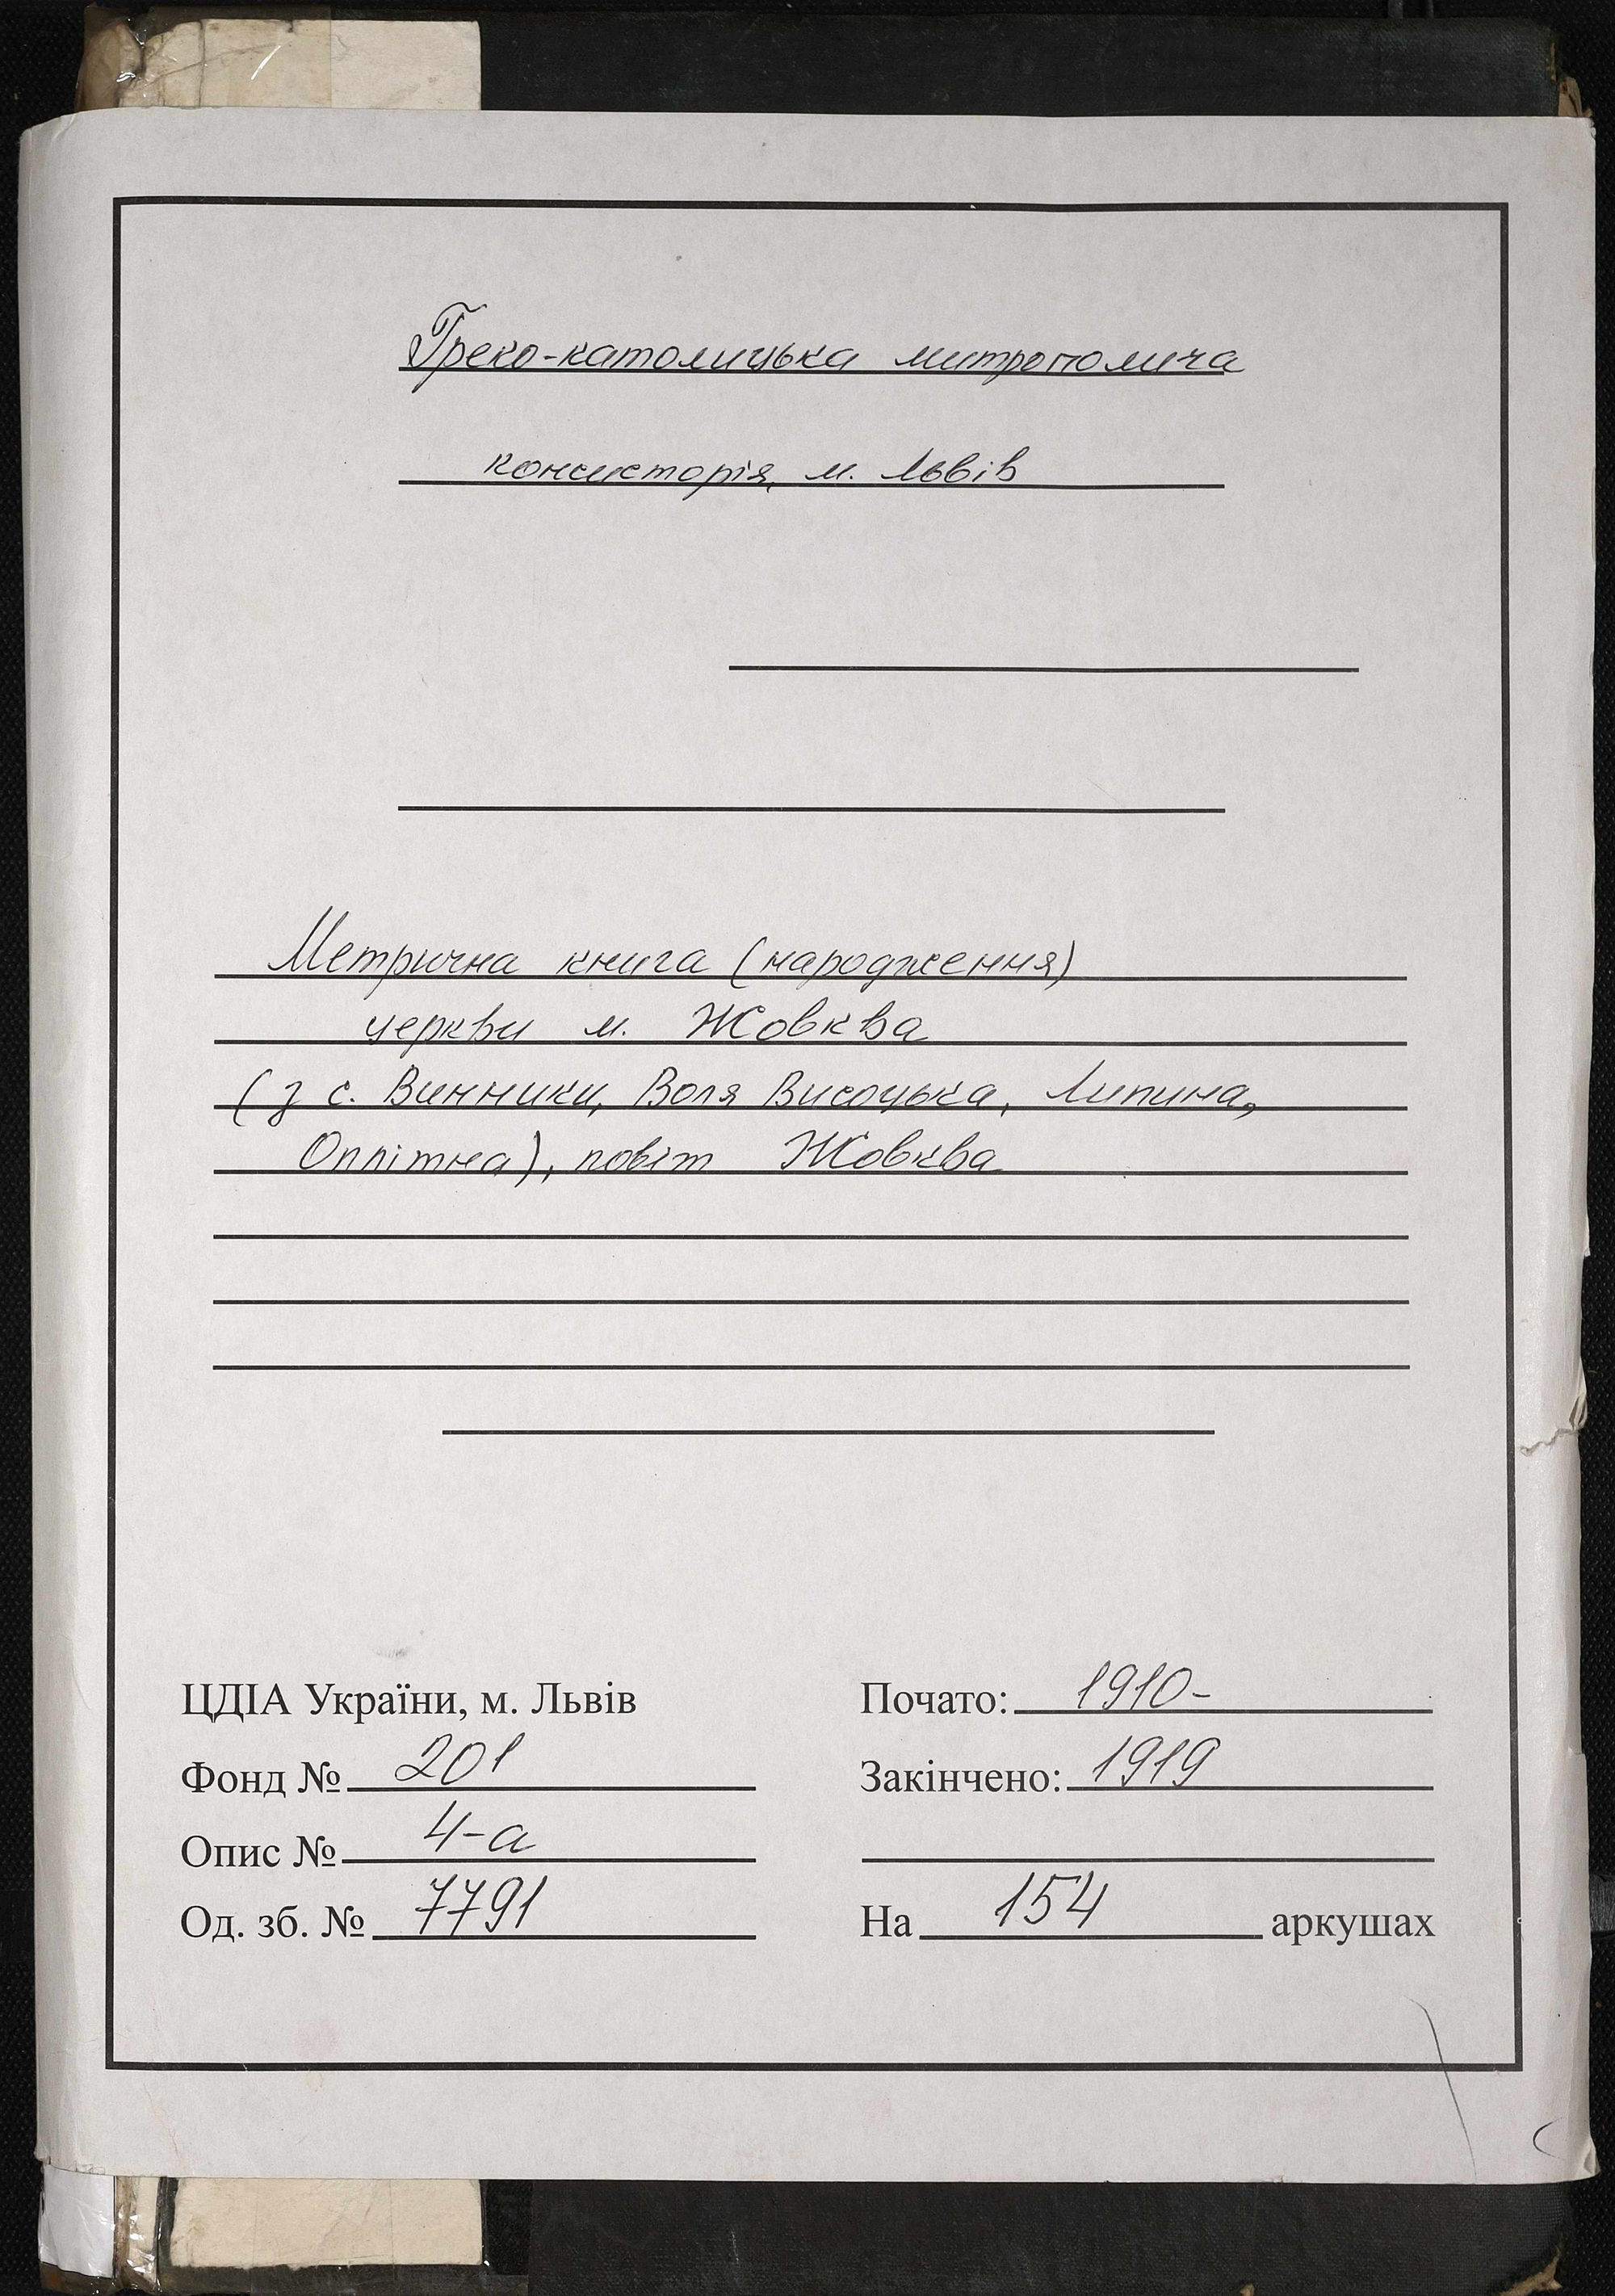 Греко-католицька митрополича
консисторія, м. Львів
Метрична книга (народження)
церкви м. Жовква
(з с. Винники, Воля Висоцька, Липина,
Оплітна), повіт Жовква
ЦДІА України, м. Львів
Фонд № 201
Опис № 4-а
Од. зб. № 7791
Почато: 1910-
Закінчено: 1919
На 154 аркушах